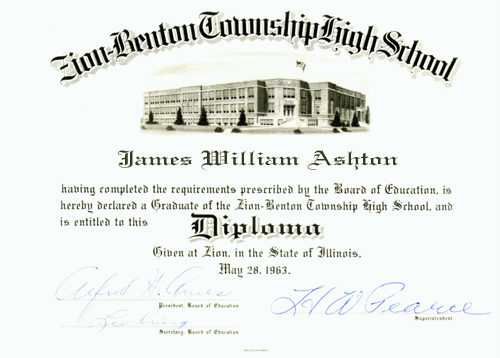 Zion-Benton Township High School
James William Ashton
having completed the requirements prescribed by the Board of Education, is
hereby declared a Graduate of the Zion-Benton Township High School, and
is entitled to this Diploma
Given at Zion, in the State of Illinois,
May 28, 1963.
Alfred H. Ames
President, Board of Education
H W Pearce
Superintendent
Secretary, Board of Education